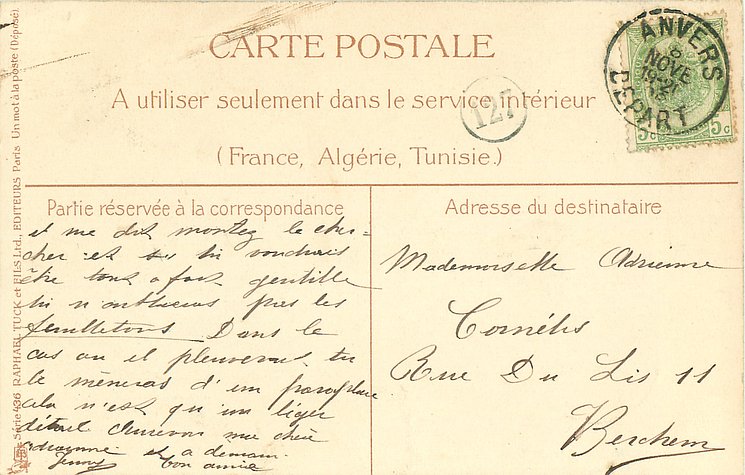 CARTE POSTALE
A utiliser seulement dans le service intérieur
(France, Algérie, Tunisie.)
127
ANVERS
8
NOVE
DEPART
5 c 5 c
Série 436 RAPHAEL TUCK et FILS Ltd., EDITEURS Paris Un mot à la poste (Déposé)
Partie réservée à la correspondance
et me dit montez le cher-
cher et si tu voudrais
être tout a fait gentille
tu n'oublieras pas les
feuilletons Dans le
cas ou il pleuverait tu
te mèneras d'un parapluie
cela n'est qu'un léger
détail Aurevoir ma chère
Adrienne et a demain
Jenny bon amie
Adresse du destinataire
Mademoiselle Adrienne
Cornélis
Rue Du Lis 11
Berchem